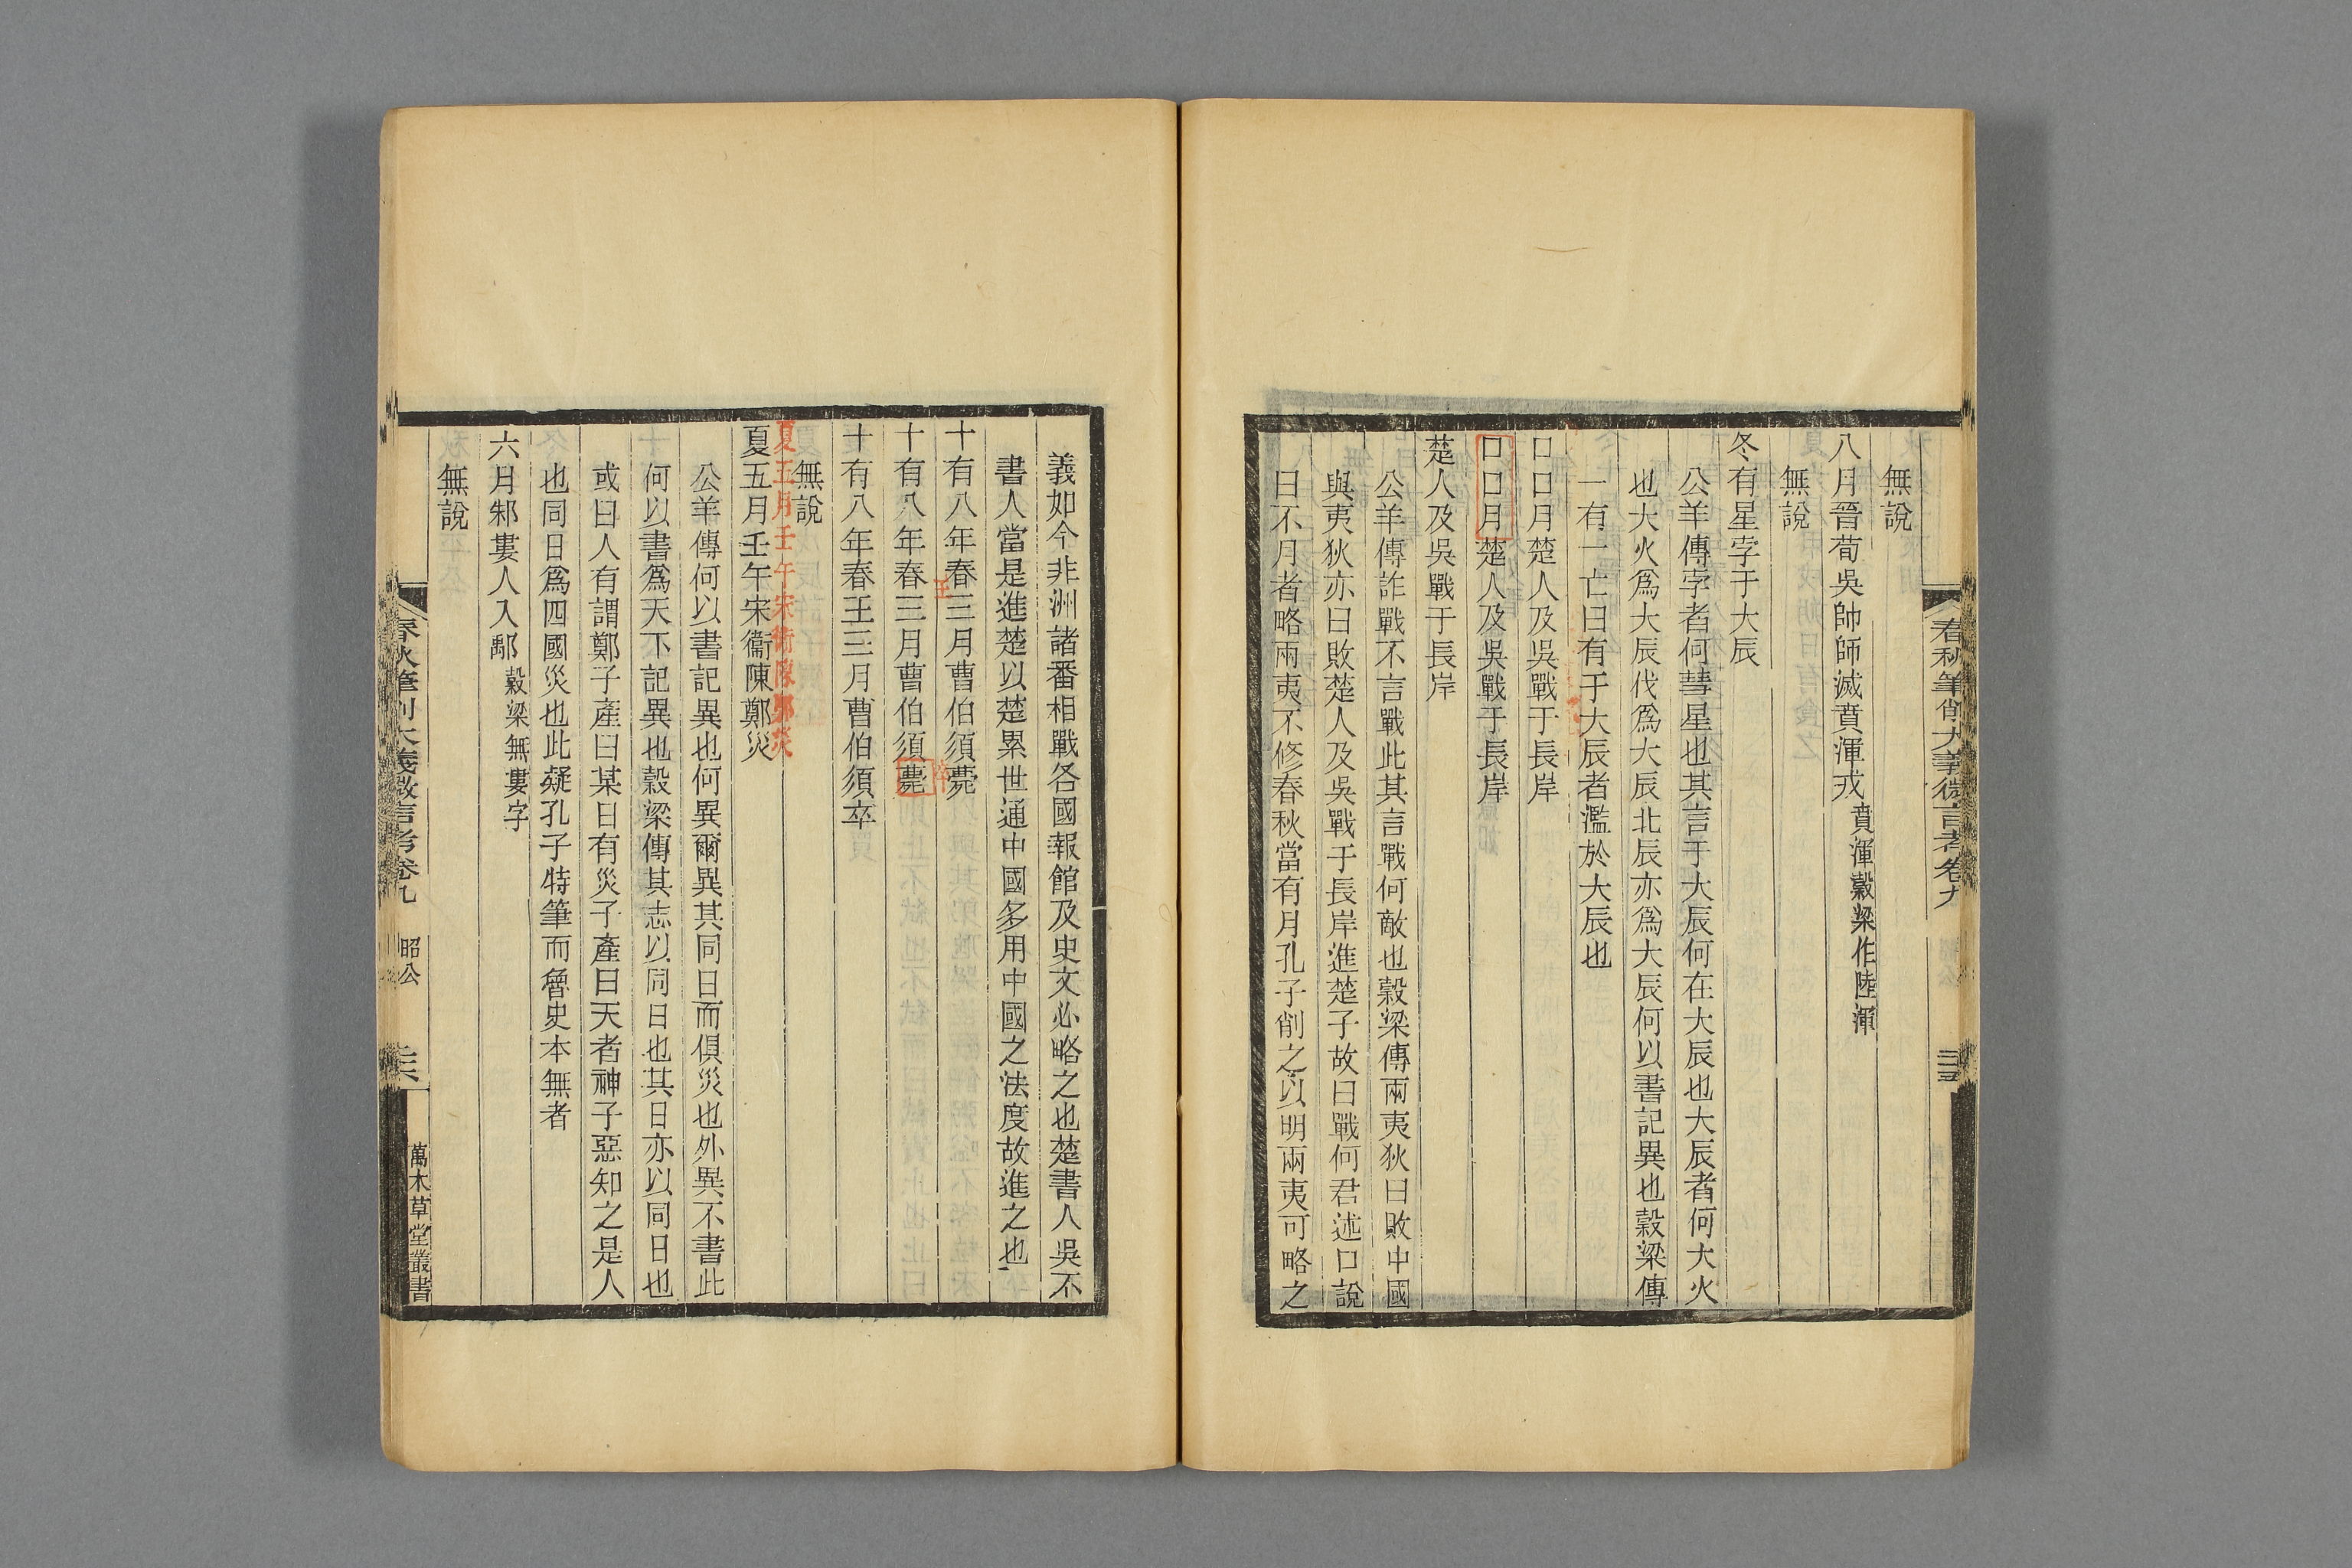 春秋筆削大義微言考卷九
三五
無說
八月晉荀吳帥師滅賁渾戎賁渾穀梁作陸渾
無說
冬有星孛于大辰
公羊傳孛者何彗星也其言于大辰何在大辰也大辰者何大火
也大火爲大辰伐爲大辰北辰亦爲大辰何以書記異也穀梁傳
一有一亡曰有于大辰者濫於大辰也
口口月楚人及吳戰于長岸
口口月楚人及吳戰于長岸
楚人及吳戰于長岸
公羊傳詐戰不言戰此其言戰何敵也穀梁傳兩夷狄曰敗中國
與夷狄亦曰敗楚人及吳戰于長岸進楚子故曰戰何君述口說
曰不月者略兩夷不修春秋當有月孔子削之以明兩夷可略之
義如今非洲諸番相戰各國報館及史文必略之也楚書人吳不
書人當是進楚以楚累世通中國多用中國之法度故進之也
十有八年春三月曹伯須薨
王
卒
十有八年春三月曹伯須薨
十有八年春王三月曹伯須卒
無說
夏五月壬午宋衞陳鄭災
夏五月壬午宋衞陳鄭災
公羊傳何以書記異也何異爾異其同日而俱災也外異不書此
何以書爲天下記異也穀梁傳其志以同日也其日亦以同日也
或曰人有謂鄭子產曰某日有災子產曰天者神子惡知之是人
也同日爲四國災也此疑孔子特筆而魯史本無者
六月邾婁人入鄅穀梁無婁字
無說
春秋筆削大義微言考卷九
昭公
三六
萬木草堂叢書